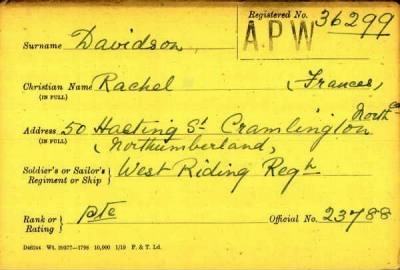 Registered No. 36299
A.P.W
Surname Davidson,
Christian Name Rachel (Frances)
(IN FULL)
North Co
Address 50 Hasting St Cramlington
(IN FULL) (Northumberland,
Soldier's or Sailor's West Riding Regt
Regiment or Ship
Rank or Pte Official No. 23788
Rating
D48244 Wt. 20377—1798 10,000 1/19 F. & T. Ld.